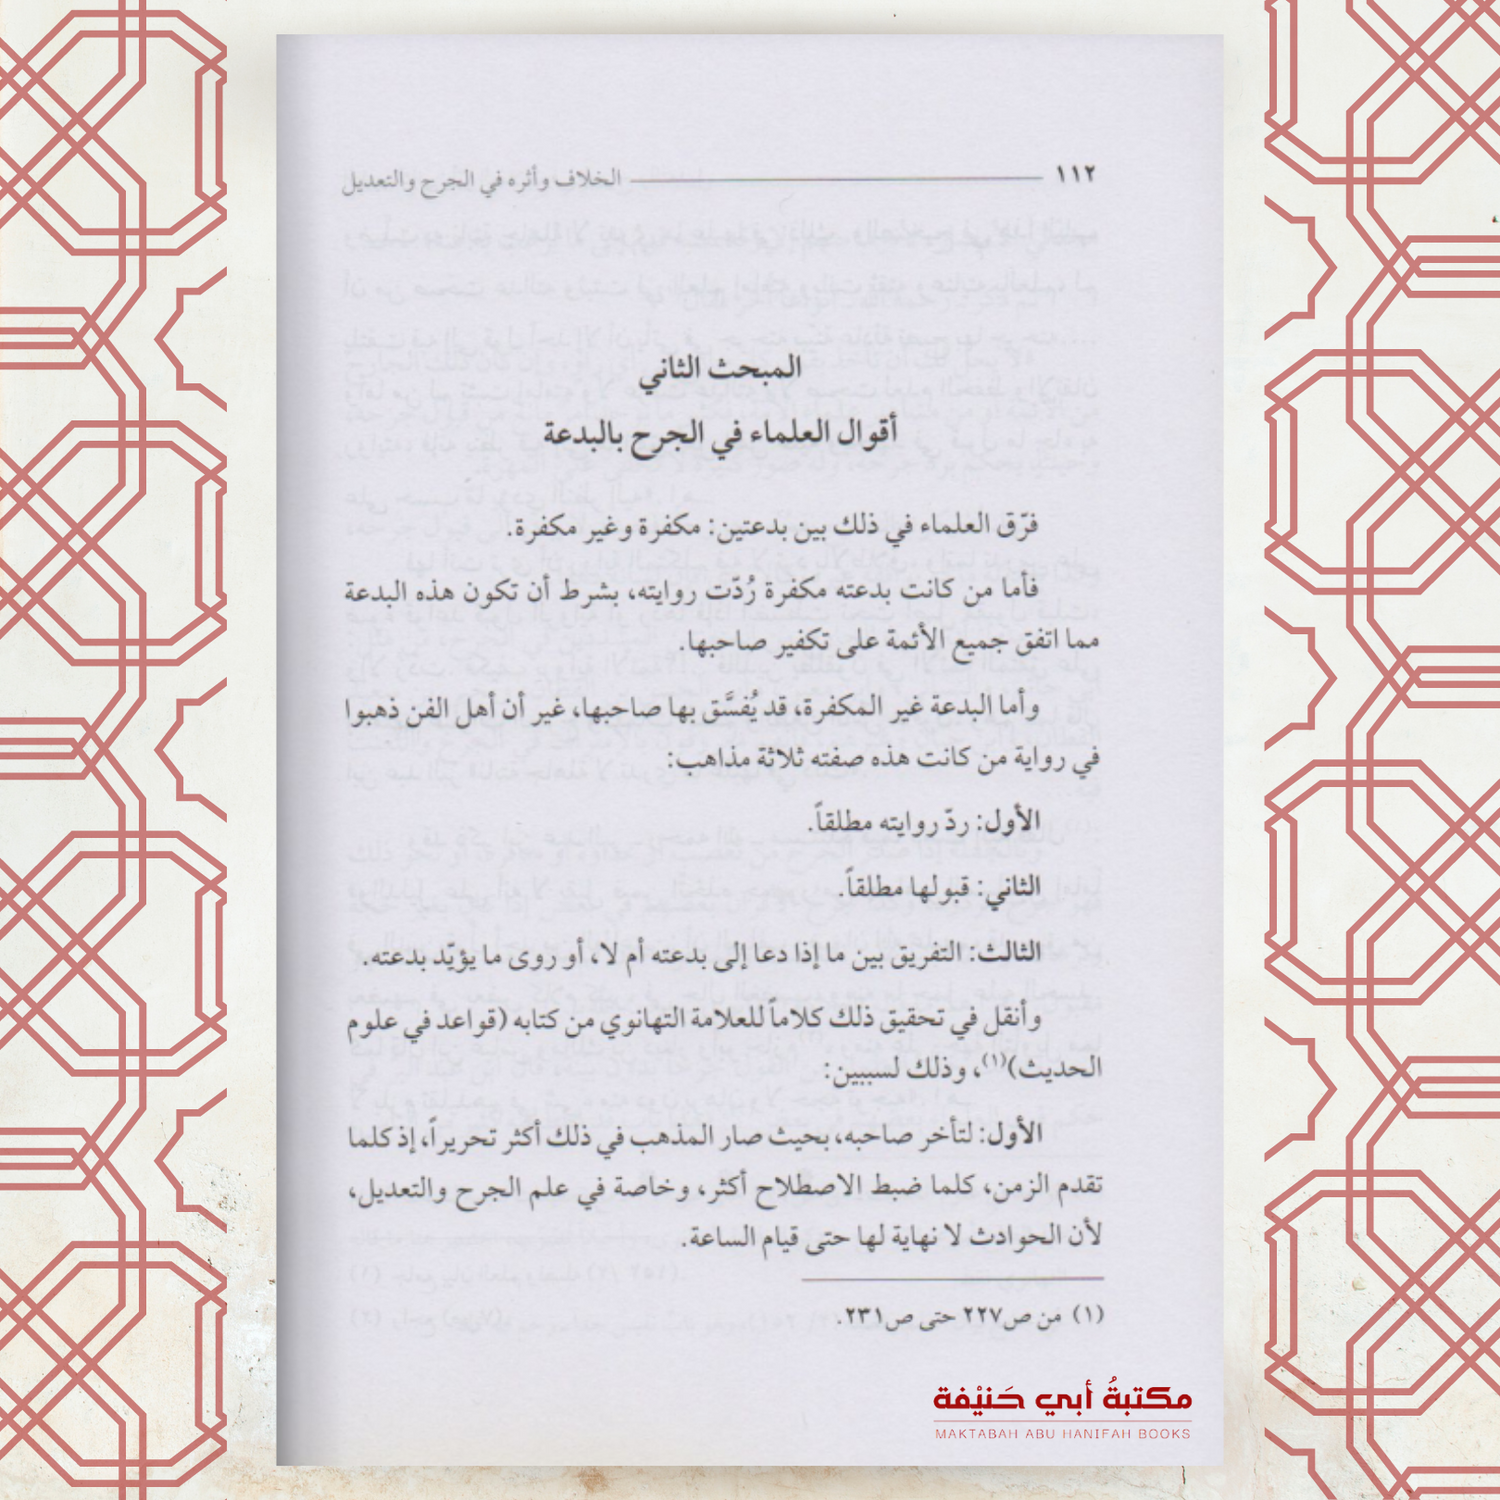 ١١٢ الخلاف وأثره في الجرح والتعديل
المبحث الثاني
أقوال العلماء في الجرح بالبدعة
فرّق العلماء في ذلك بين بدعتين: مكفرة وغير مكفرة.
فأما من كانت بدعته مكفرة رُدّت روايته، بشرط أن تكون هذه البدعة
مما اتفق جميع الأئمة على تكفير صاحبها.
وأما البدعة غير المكفرة، قد يُفسَّق بها صاحبها، غير أن أهل الفن ذهبوا
في رواية من كانت هذه صفته ثلاثة مذاهب:
الأول: ردّ روايته مطلقاً.
الثاني: قبولها مطلقاً.
الثالث: التفريق بين ما إذا دعا إلى بدعته أم لا، أو روى ما يؤيّد بدعته.
وأنقل في تحقيق ذلك كلاماً للعلامة التهانوي من كتابه (قواعد في علوم
الحديث)(١)، وذلك لسببين:
الأول: لتأخر صاحبه، بحيث صار المذهب في ذلك أكثر تحريراً، إذ كلما
تقدم الزمن، كلما ضبط الاصطلاح أكثر، وخاصة في علم الجرح والتعديل،
لأن الحوادث لا نهاية لها حتى قيام الساعة.
(١) من ص٢٢٧ حتى ص٢٣١.
مكتبةُ أبي حَنيْفة
MAKTABAH ABU HANIFAH BOOKS